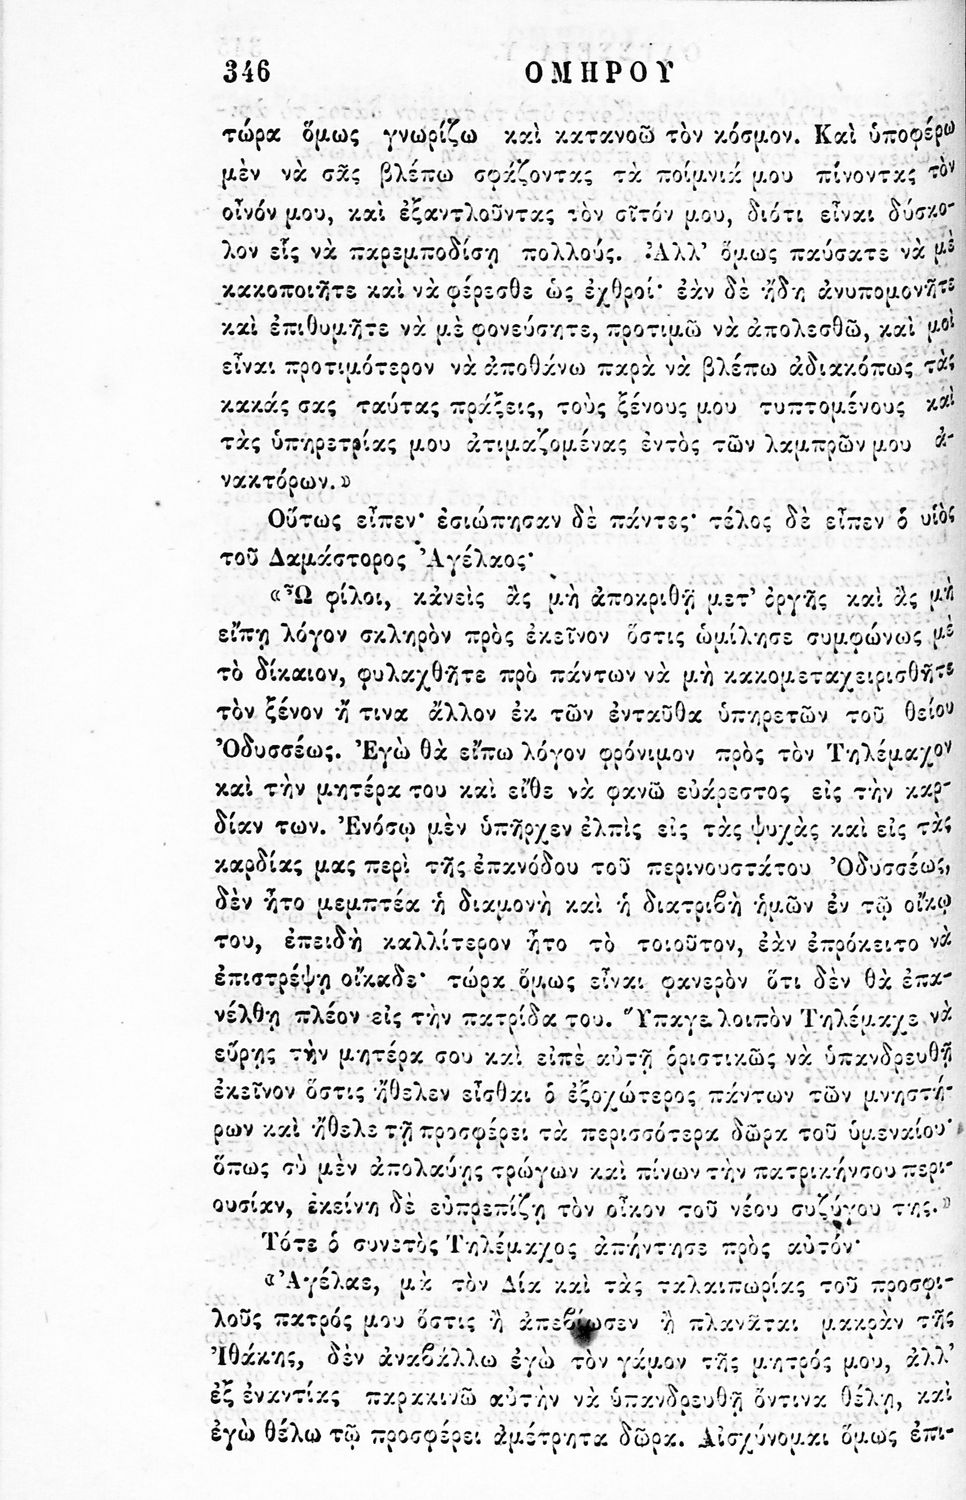 346 ΟΜΗΡΟΥ
τώρα ὅμως γνωρίζω καὶ κατανοῶ τὸν κόσμον. Καὶ ὑποφέρω
μὲν νὰ σᾶς βλέπω σφάζοντας τὰ ποίμνιά μου πίνοντας τὸν
οἶνόν μου, καὶ ἐξαντλοῦντας τὸν σῖτόν μου, διότι εἶναι δύσκο-
λον εἷς νὰ παρεμποδίσῃ πολλούς. Ἀλλ’ ὅμως παύσατε νὰ μὲ
κακοποιῆτε καὶ νὰ φέρεσθε ὡς ἐχθροί· ἐὰν δὲ ἤδη ἀνυπομονῆτε
καὶ ἐπιθυμῆτε νὰ μὲ φονεύσητε, προτιμῶ νὰ ἀπολεσθῶ, καὶ μοὶ
εἶναι προτιμότερον νὰ ἀποθάνω παρὰ νὰ βλέπω ἀδιακόπως τὰς
κακάς σας ταύτας πράξεις, τοὺς ξένους μου τυπτομένους καὶ
τὰς ὑπηρετρίας μου ἀτιμαζομένας ἐντὸς τῶν λαμπρῶν μου ἀ-
νακτόρων.»
Οὕτως εἶπεν· ἐσιώπησαν δὲ πάντες· τέλος δὲ εἶπεν ὁ υἱὸς
τοῦ Δαμάστορος Ἀγέλαος·
«Ὦ φίλοι, κἀνεὶς ἂς μὴ ἀποκριθῇ μετ’ ὀργῆς καὶ ἂς μὴ
εἴπῃ λόγον σκληρὸν πρὸς ἐκεῖνον ὅστις ὡμίλησε συμφώνως μὲ
τὸ δίκαιον, φυλαχθῆτε πρὸ πάντων νὰ μὴ κακομεταχειρισθῆτε
τὸν ξένον ἤ τινα ἄλλον ἐκ τῶν ἐνταῦθα ὑπηρετῶν τοῦ θείου
Ὀδυσσέως. Ἐγὼ θὰ εἴπω λόγον φρόνιμον πρὸς τὸν Τηλέμαχον
καὶ τὴν μητέρα του καὶ εἴθε νὰ φανῶ εὐάρεστος εἰς τὴν καρ-
δίαν των. Ἐνόσῳ μὲν ὑπῆρχεν ἐλπὶς εἰς τὰς ψυχὰς καὶ εἰς τὰς
καρδίας μας περὶ τῆς ἐπανόδου τοῦ περινουστάτου Ὀδυσσέως,
δὲν ἦτο μεμπτέα ἡ διαμονὴ καὶ ἡ διατριβὴ ἡμῶν ἐν τῷ οἴκῳ
του, ἐπειδὴ καλλίτερον ἦτο τὸ τοιοῦτον, ἐὰν ἐπρόκειτο νὰ
ἐπιστρέψῃ οἴκαδε· τώρα ὅμως εἶναι φανερὸν ὅτι δὲν θὰ ἐπα-
νέλθῃ πλέον εἰς τὴν πατρίδα του. Ὕπαγε λοιπὸν Τηλέμαχε νὰ
εὕρῃς τὴν μητέρα σου καὶ εἰπὲ αὐτῇ ὁριστικῶς νὰ ὑπανδρευθῇ
ἐκεῖνον ὅστις ἤθελεν εἶσθαι ὁ ἐξοχώτερος πάντων τῶν μνηστή-
ρων καὶ ἤθελε τῇ προσφέρει τὰ περισσότερα δῶρα τοῦ ὑμεναίου·
ὅπως σὺ μὲν ἀπολαύῃς τρώγων καὶ πίνων τὴν πατρικήν σου περι-
ουσίαν, ἐκείνη δὲ εὐπρεπίζῃ τὸν οἶκον τοῦ νέου συζύγου της.»
Τότε ὁ συνετὸς Τηλέμαχος ἀπήντησε πρὸς αὐτόν·
«Ἀγέλαε, μὰ τὸν Δία καὶ τὰς ταλαιπωρίας τοῦ προσφι-
λοῦς πατρός μου ὅστις ἢ ἀπεβίωσεν ἢ πλανᾶται μακρὰν τῆς
Ἰθάκης, δὲν ἀναβάλλω ἐγὼ τὸν γάμον τῆς μητρός μου, ἀλλ’
ἐξ ἐναντίας παρακινῶ αὐτὴν νὰ ὑπανδρευθῇ ὅντινα θέλῃ, καὶ
ἐγὼ θέλω τῷ προσφέρει ἀμέτρητα δῶρα. Αἰσχύνομαι ὅμως ἐπι-